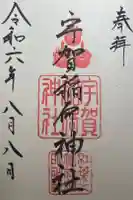 奉拝
宇賀稲荷神社
宇賀神社
令和六年八月八日